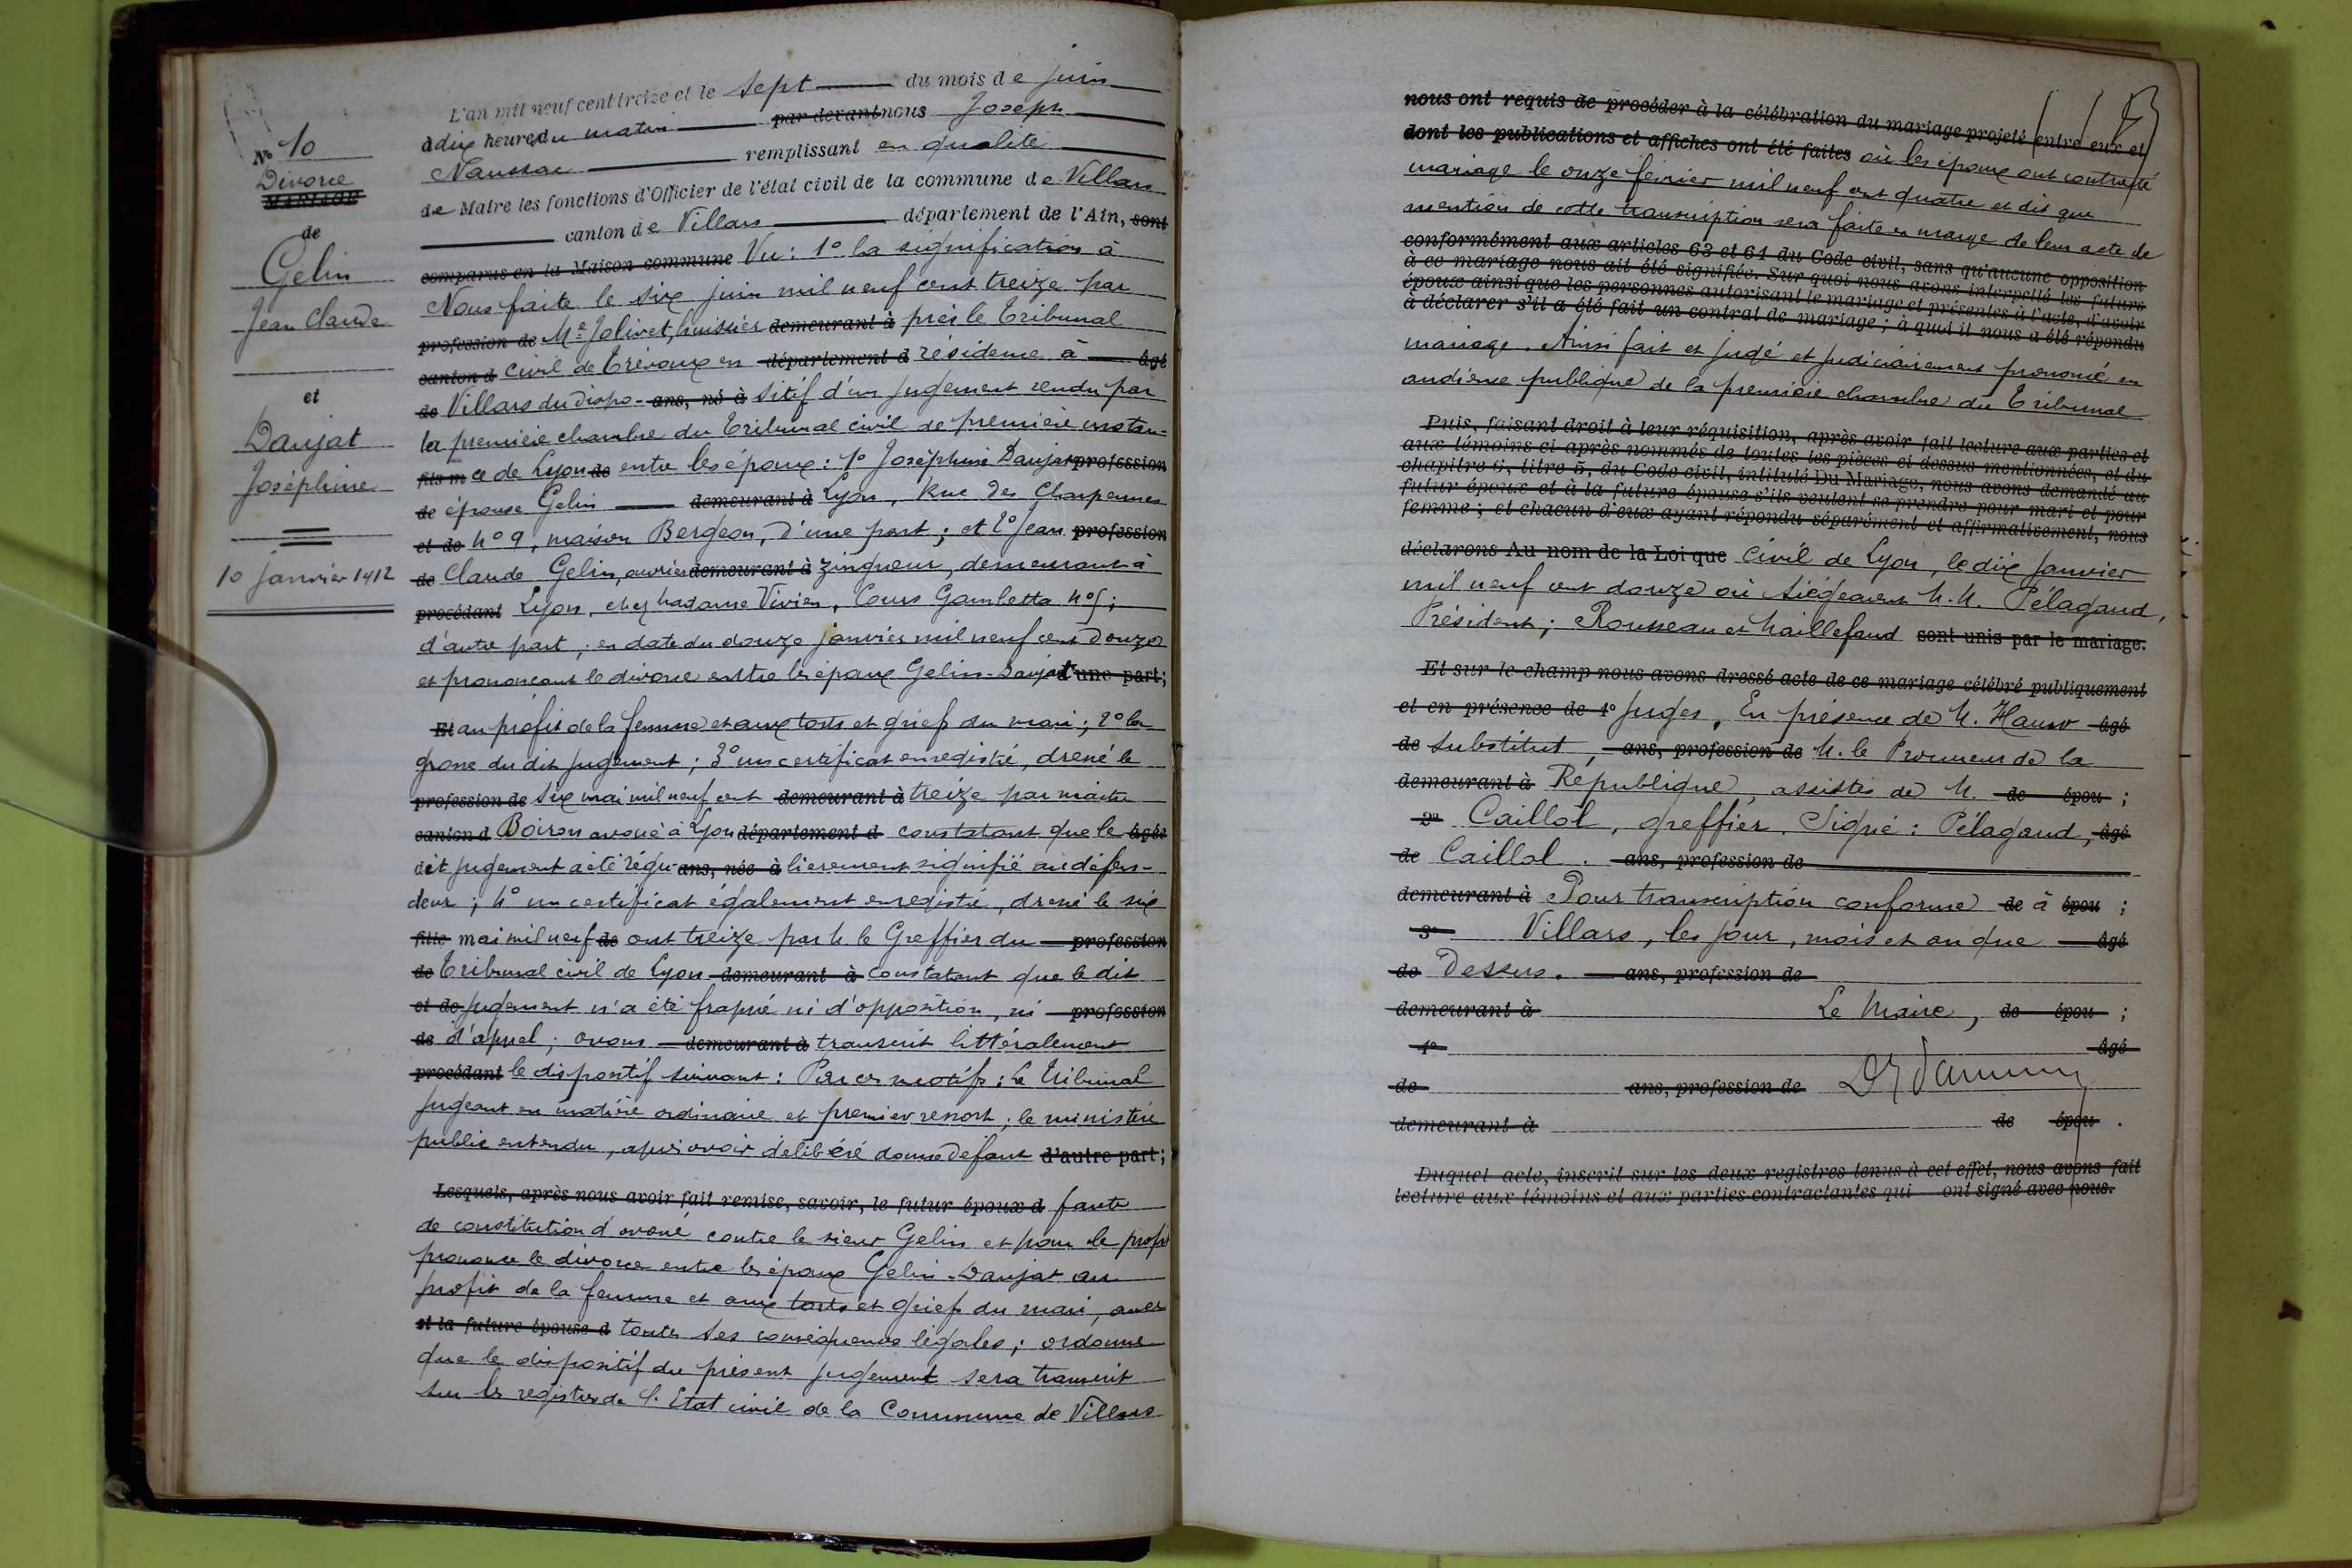 N° 10
Divorce
MARIAGE
de
Gelin
Jean Claude
et
Daujat
Joséphine
10 Janvier 1912
L'an mil neuf cent treize et le sept du mois de juin
à dix heures du matin par devant nous Joseph
Naussac remplissant en qualité
de Maire les fonctions d'Officier de l'état civil de la commune de Villars
canton de Villars département de l'Ain, sont
comparus en la Maison commune Vu : 1° la signification à
Nous faite le six juin mil neuf cent treize par
profession de Me Jolivet, huissier demeurant à près le Tribunal
canton d civil de Trévoux en département d résidence à âgé
de Villars du dispo- ans, né à sitif d'un jugement rendu par
la première chambre du Tribunal civil de première instan-
fils m ce de Lyon de entre les époux : 1° Joséphine Daujat profession
de épouse Gelin demeurant à Lyon, Rue des Charpennes
et de n° 9, maison Bergeon, d'une part ; et 2° Jean profession
de Claude Gelin, ouvrier demeurant à zingueur, demeurant à
procédant Lyon, chez Madame Vivien, Cours Gambetta n° 5 ;
d'autre part ; en date du douze janvier mil neuf cent douze
et prononçant le divorce entre les époux Gelin-Daujat d'une part ;
Et au profit de la femme et aux torts et griefs du mari ; 2° la
grosse du dit jugement ; 3° un certificat enregistré, dressé le
profession de six mai mil neuf cent demeurant à treize par maître
canton d Boiron avoué à Lyon département d constatant que le âgée
dit jugement a été régu- ans, née à lièrement signifié au défen-
deur ; 4° un certificat également enregistré, dressé le six
fille mai mil neuf de cent treize par M. le Greffier du profession
de Tribunal civil de Lyon demeurant à constatant que le dit
et de jugement n'a été frappé ni d'opposition, ni profession
de d'appel ; avons demeurant à transcrit littéralement
procédant le dispositif suivant : Par ces motifs : Le Tribunal
jugeant en matière ordinaire et premier ressort ; le ministère
public entendu, après avoir délibéré donne défaut d'autre part ;
Lesquels, après nous avoir fait remise, savoir, le futur époux d faute
de constitution d'avoué contre le sieur Gelin et pour le profit
prononce le divorce entre les époux Gelin-Daujat au
profit de la femme et aux torts et griefs du mari, avec
et la future épouse d toutes ses conséquences légales ; ordonne
que le dispositif du présent jugement sera transcrit
sur les registres de l'Etat civil de la Commune de Villars
nous ont requis de procéder à la célébration du mariage projeté entre eux et
dont les publications et affiches ont été faites où les époux ont contracté
mariage le onze février mil neuf cent quatre et dit que
mention de cette transcription sera faite en marge de leur acte de
conformément aux articles 63 et 64 du Code civil, sans qu'aucune opposition
à ce mariage nous ait été signifiée. Sur quoi nous avons interpellé les futurs
époux ainsi que les personnes autorisant le mariage et présentes à l'acte, d'avoir
à déclarer s'il a été fait un contrat de mariage ; à quoi il nous a été répondu
mariage. Ainsi fait et jugé et judiciairement prononcé en
audience publique de la première chambre du Tribunal
Puis, faisant droit à leur réquisition, après avoir fait lecture aux parties et
aux témoins ci-après nommés de toutes les pièces ci-dessus mentionnées, et du
chapitre 6, titre 5, du Code civil, intitulé Du Mariage, nous avons demandé au
futur époux et à la future épouse s'ils veulent se prendre pour mari et pour
femme ; et chacun d'eux ayant répondu séparément et affirmativement, nous
déclarons Au nom de la Loi que civil de Lyon, le dix Janvier
mil neuf cent douze où siégeaient M.M. Pélagaud,
Président ; Rousseau et Maillefaud sont unis par le mariage.
Et sur-le-champ nous avons dressé acte de ce mariage célébré publiquement
et en présence de 1° Juges. En présence de M. Hauw âgé
de Substitut, ans, profession de M. le Procureur de la
demeurant à République, assistés de M. de épou ;
2° Caillol, greffier. Signé : Pélagaud, âgé
de Caillol. ans, profession de
demeurant à Pour transcription conforme de à épou ;
3° Villars, les jour, mois et an que âgé
de Dessus. ans, profession de
demeurant à Le Maire, de épou ;
4° âgé
de ans, profession de
demeurant à de épou .
Duquel acte, inscrit sur les deux registres tenus à cet effet, nous avons fait
lecture aux témoins et aux parties contractantes qui ont signé avec nous.